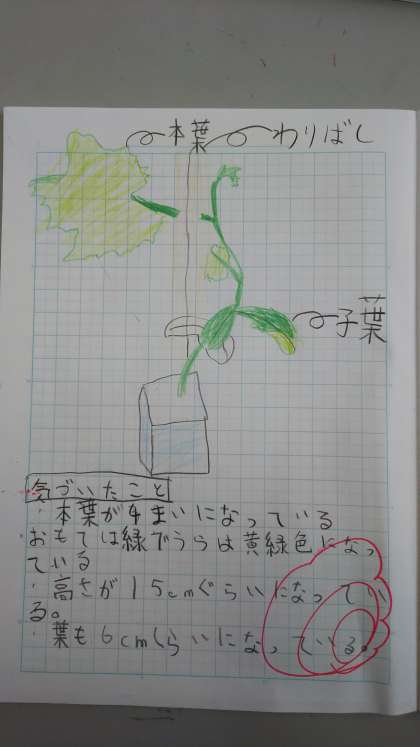 本葉
わりばし
子葉
気づいたこと
・本葉が4まいになっている
おもては緑でうらは黄緑色になっ
ている
・高さが15cmぐらいになってい
る。
・葉も6cmくらいになっている。